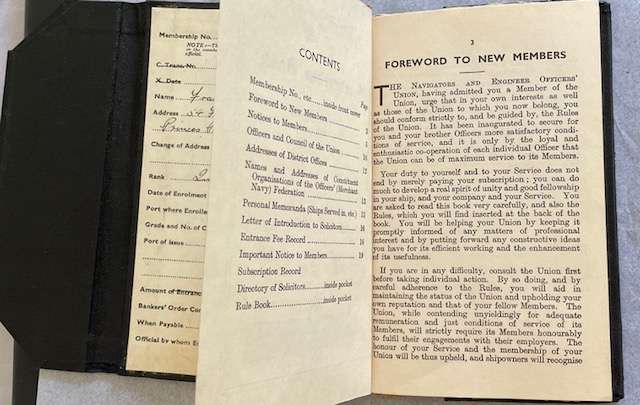 Membership No.
NOTE:—Th
official.
C. Trans. No.
X. Date
Name
Address
Princes
Change of Address
Rank
Date of Enrolment
Port where Enrolle
Grade and No. of C
Port of Issue
Amount of Entrance
Bankers' Order Com
When Payable
Official by whom E
CONTENTS
Page
Membership No., etc......inside front cover
Foreword to New Members
Notices to Members
Officers and Council of the Union
Addresses of District Offices
Names and Addresses of Constituent
Organisations of the Officers' (Merchant
Navy) Federation
Personal Memoranda (Ships Served in, etc)
Letter of Introduction to Solicitors
Entrance Fee Record
Important Notice to Members
Subscription Record
Directory of Solicitors inside pocket
Rule Book inside pocket
3
FOREWORD TO NEW MEMBERS
THE NAVIGATORS AND ENGINEER OFFICERS'
UNION, having admitted you a Member of the
Union, urge that in your own interests as well
as those of the Union to which you now belong, you
should conform strictly to, and be guided by, the Rules
of the Union. It has been inaugurated to secure for
you and your brother Officers more satisfactory condi-
tions of service, and it is only by the loyal and
enthusiastic co-operation of each individual Officer that
the Union can be of maximum service to its Members.
Your duty to yourself and to your Service does not
end by merely paying your subscription; you can do
much to develop a real spirit of unity and good fellowship
in your ship, and your company and your Service. You
are asked to read this book very carefully, and also the
Rules, which you will find inserted at the back of the
book. You will be helping your Union by keeping it
promptly informed of any matters of professional
interest and by putting forward any constructive ideas
you have for its efficient working and the enhancement
of its usefulness.
If you are in any difficulty, consult the Union first
before taking individual action. By so doing, and by
careful adherence to the Rules, you will aid in
maintaining the status of the Union and upholding your
own reputation and that of your fellow Members. The
Union, while contending unyieldingly for adequate
remuneration and just conditions of service of its
Members, will strictly require its Members honourably
to fulfil their engagements with their employers. The
honour of your Service and the membership of your
Union will be thus upheld, and shipowners will recognise